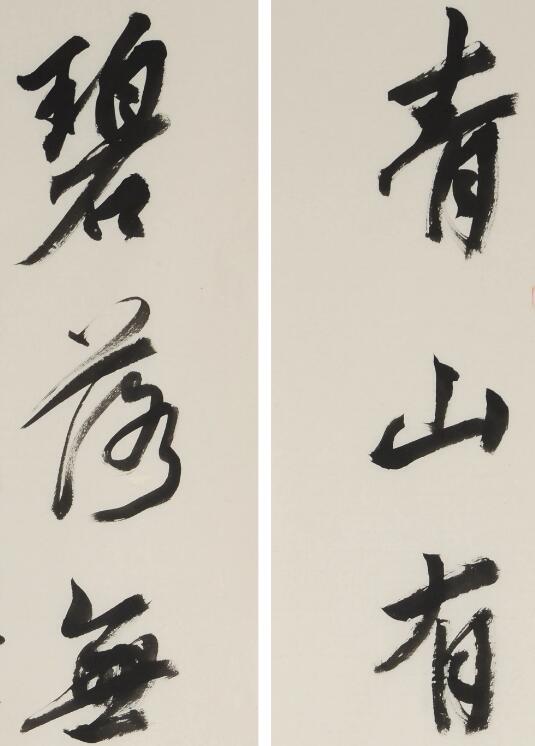 青山有
碧落無